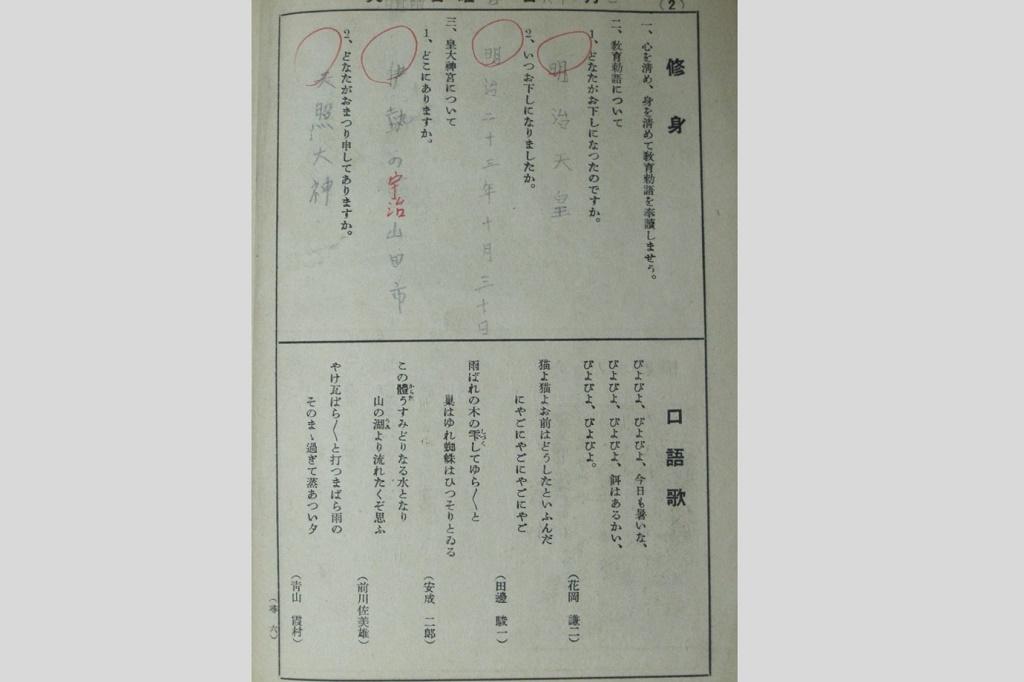 (2)
修身
一、心を清め、身を清めて教育勅語を奉讀しませう。
二、教育勅語について
1、どなたがお下しになつたのですか。
明治天皇
2、いつお下しになりましたか。
明治二十三年十月三十日
三、皇大神宮について
1、どこにありますか。
伊勢の宇治山田市
2、どなたがおまつり申してありますか。
天照大神
口語歌
ぴよぴよ、ぴよぴよ、今日も暑いな、
ぴよぴよ、ぴよぴよ、餌はあるかい、
ぴよぴよ、ぴよぴよ。
(花岡 謙二)
猫よ猫よお前はどうしたといふんだ
にやごにやごにやごにやご
(田邊 駿一)
雨ばれの木の雫してゆら〳〵と
巣はゆれ蜘蛛はひつそりとゐる
(安成 二郎)
この體うすみどりなる水となり
山の湖より流れたくぞ思ふ
(前川佐美雄)
やけ瓦ばら〳〵と打つまばら雨の
そのまゝ過ぎて蒸あつい夕
(靑山 霞村)
(尋 六)